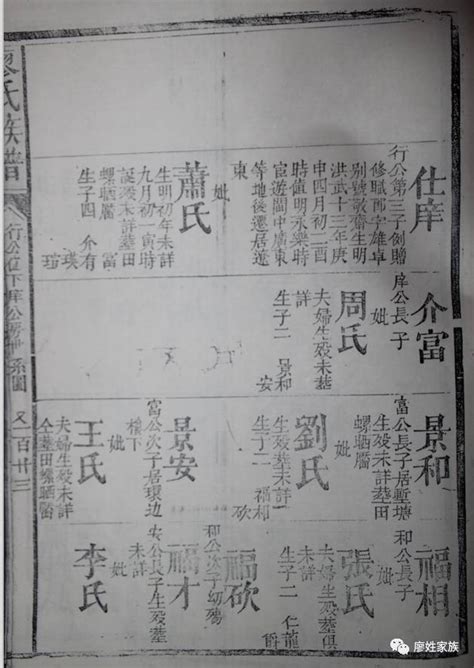 仕庠
行公第三子劍贈
修賦而字雄卓
別號敬齋生明
洪武十三年庚
申四月初二酉
時值明永樂時
宦遊閩中廣東
等地後還居遊
東
妣
蕭氏
生明初年未詳
九月初一寅時
誕歿未詳塟田
螺晒靨
生子四 介富有瑛
介富
庠公長子
妣
周氏
夫婦生歿未塟
未詳
生子二 景和安
景和
富公長子居塹塘
生歿未詳塟田
螺晒靨
妣
劉氏
生歿塟未詳
生子二 福相砍
景安
富公次子居環边
樓下
妣
王氏
夫婦生歿未詳
仝塟田螺晒靨
福相
和公長子
妣
張氏
夫婦生歿塟俱
未詳
生子二 仁龍爵
福砍
和公次子幼殤
福才
安公長子生歿
未詳
妣
李氏
廖氏族譜
行公位下庠公房世系圖
又一百廿三
廖姓家族